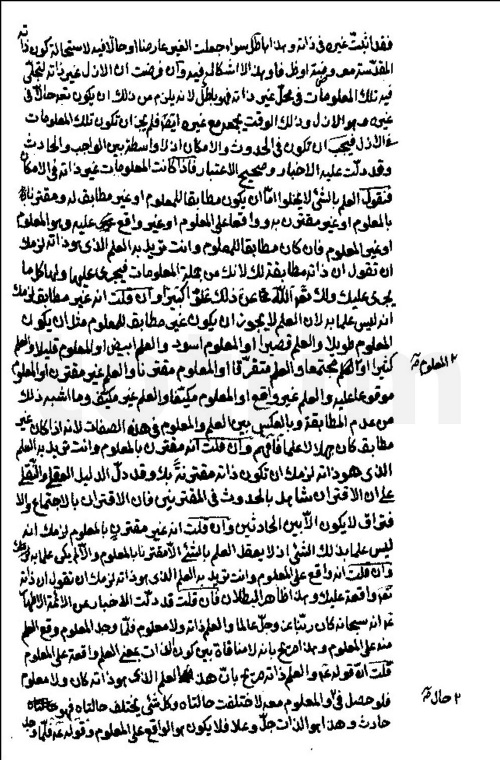 فقد اثبتّ غيره في ذاته وهذا باطل سواء جعلت الغير عارضا او حالّا فيه لاستحالة كون ذاته
المقدّسة معروضة او ظرفا وهذا لا اشكال فيه وان فرضت ان الازل غير ذاته لتجلّى
فيه تلك المعلومات في محلّ غير ذاته فهو باطل لانه يلزم من ذلك ان يكون تعه حالّا في
غيره وهو الازل وذلك الوقت يجمعه مع غيره ايضا فلم يجز ان تكون تلك المعلومات
في الازل فيجب ان تكون في الحدوث والامكان اذ لا واسطة بين الواجب والحادث
وقد دلّت عليه الاخبار وصحيح الاعتبار فاذا كانت المعلومات غير ذاته في الامكان
فنقول العلم بالشئ لا يخلو امّا ان يكون مطابقا للمعلوم او غير مطابق له ومقترنا
بالمعلوم او غير مقترن به وواقعا على المعلوم او غير واقع عليه وهو المعلوم
او غير المعلوم فان كان مطابقا للمعلوم وانت تريد به العلم الذي هو ذاته لزمك
ان تقول ان ذاته مطابقة لك لانك من جملة المعلومات فيجري عليها ولها كلما
يجري عليك ولك تعه اللّه عن ذلك علوّا كبيرا وان قلت انه غير مطابق لزمك
انه ليس علما به لان العلم لا يجوز ان يكون غير مطابق للمعلوم مثل ان يكون
المعلوم طويلا والعلم قصيرا او المعلوم اسود والعلم ابيض او المعلوم قليلا والعلم
كثيرا او العلم مجتمعا والعلم متفرّقا او المعلوم مقترنا والعلم غير مقترن او المعلوم
٢ المعلوم
موقوعا عليه والعلم غير واقع او المعلوم مكيّفا والعلم غير مكيّف وما اشبه ذلك
من عدم المطابقة وبالعكس بين العلم والمعلوم في هذه الصفات لانه اذا كان غير
مطابق كان جهلا لا علما فافهم وان قلت انه مقترن بالمعلوم وانت تريد به العلم
الذي هو ذاته لزمك ان تكون ذاته مقترنة بك وقد دلّ الدليل العقلي والنقلي
على ان الاقتران شاهد بالحدوث في المقترنين فان الاقتران بالاجتماع والا
فتراق لا يكون الّا بين الحادثين وان قلت انه غير مقترن بالمعلوم لزمك انه
ليس علما بذلك الشئ اذ لا يعقل العلم بالشئ الّا مقترنا بالمعلوم والّا لم يكن علما به
وان قلت انه واقع على المعلوم وانت تريد به العلم الذي هو ذاته لزمك ان تقول ان ذاته
تعه واقعة عليك وهذا ظاهر البطلان فان قلت قد دلّت الاخبار عن الائمة الاطهار
انه سبحانه كان ربّنا عزّ وجلّ عالما والعلم ذاته ولا معلوم فلمّا وجد المعلوم وقع العلم
منه على المعلوم وهذا صريح بانه لا منافاة بين كون الذات بمعنى العلم واقعة على المعلوم
قلت ان قوله والعلم ذاته صريح بانّ هذا العلم الذي هو ذاته كان ولا معلوم
فلو حصل في والمعلوم معه لاختلفت حالتاه وكل شئ يختلف حالتاه فهو
٢ حال
حادث وهذا هو الذات جلّ وعلا فلا يكون هو الواقع على المعلوم وقوله فلمّا وجد